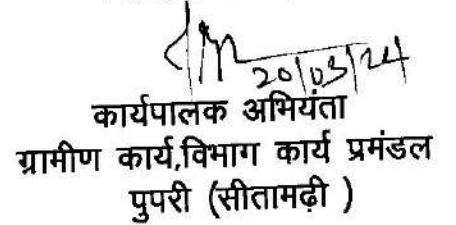 20/03/24
कार्यपालक अभियंता
ग्रामीण कार्य,विभाग कार्य प्रमंडल
पुपरी (सीतामढ़ी )